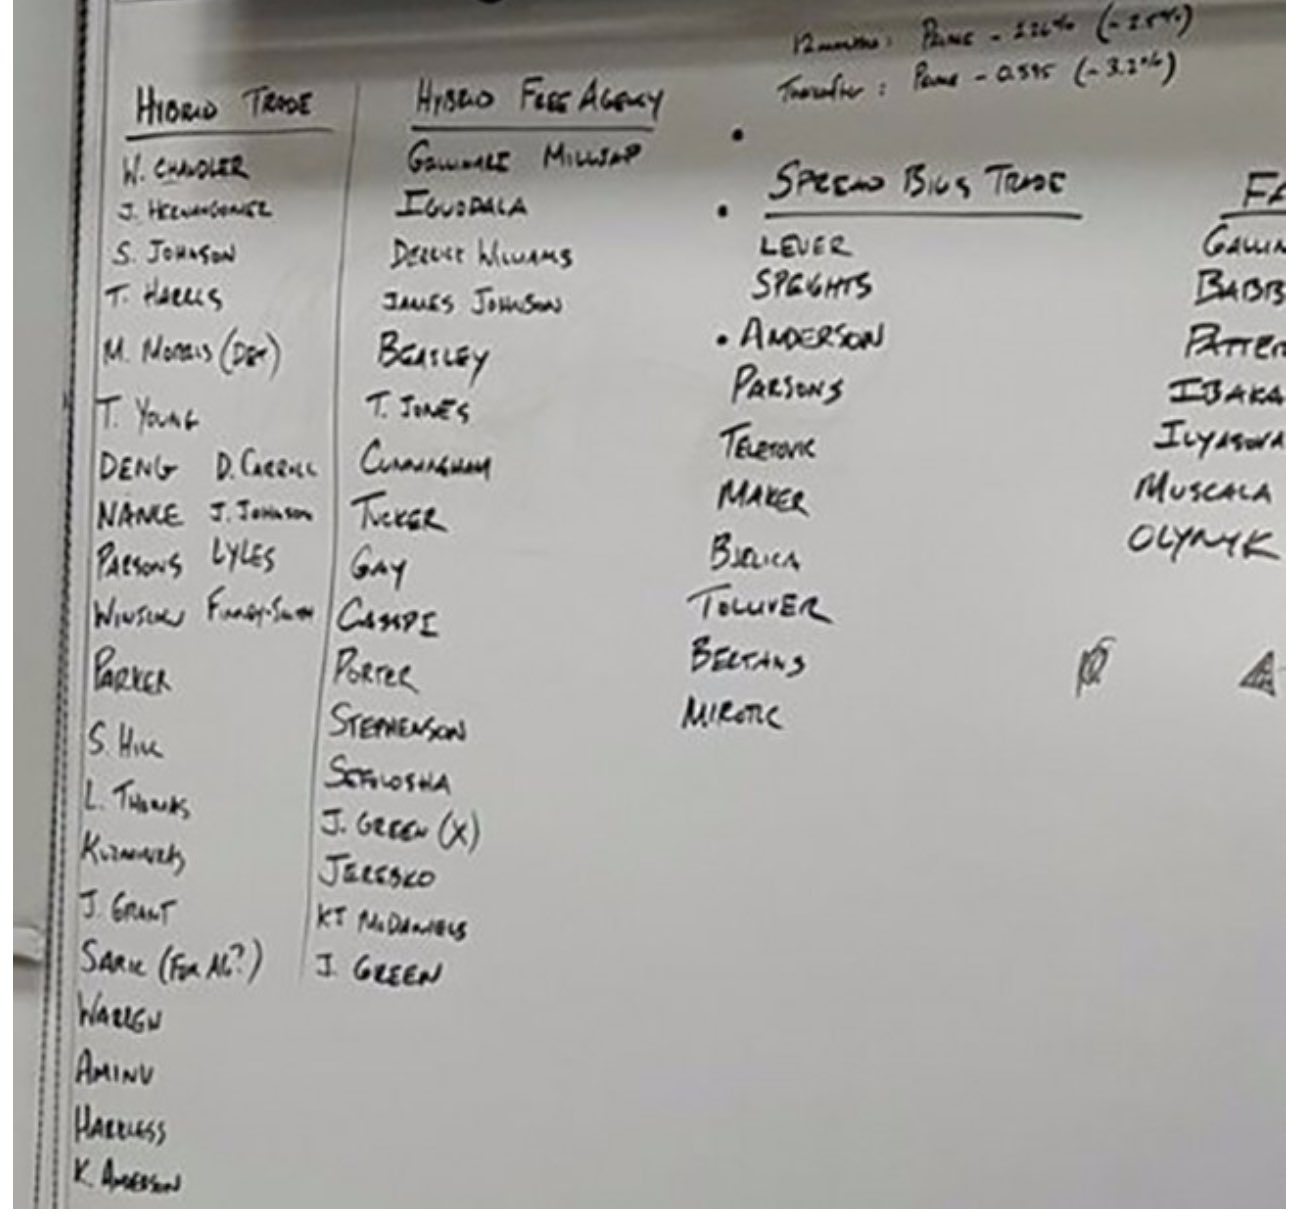 12 months: Prime - 2.26% (-2.5%)
Thereafter: Prime - 0.595 (-3.2%)
HYBRID TRADE
W. CHANDLER
J. HERNANGOMEZ
S. JOHNSON
T. HARRIS
M. MORRIS (DET)
T. YOUNG
DENG D. CARROLL
NANCE J. JOHNSON
PARSONS LYLES
WINSLOW FINNEY-SMITH
PARKER
S. HILL
L. THOMAS
KUZMINSKAS
J. GRANT
SARIC (FOR AG?)
WARREN
AMINU
HARKLESS
K. ANDERSON
HYBRID FREE AGENCY
GALLINARI MILLSAP
IGUODALA
DERRICK WILLIAMS
JAMES JOHNSON
BEASLEY
T. JONES
CUNNINGHAM
TUCKER
GAY
CASSPI
PORTER
STEPHENSON
SEFOLOSHA
J. GREEN (X)
JEREBKO
KJ McDANIELS
J. GREEN
SPREAD BIGS TRADE
LEUER
SPEIGHTS
• ANDERSON
PARSONS
TELETOVIC
MAKER
BJELICA
TOLLIVER
BERTANS
MIROTIC
FA
GALLIN
BABB
PATTER
IBAKA
ILYASOVA
MUSCALA
OLYNYK